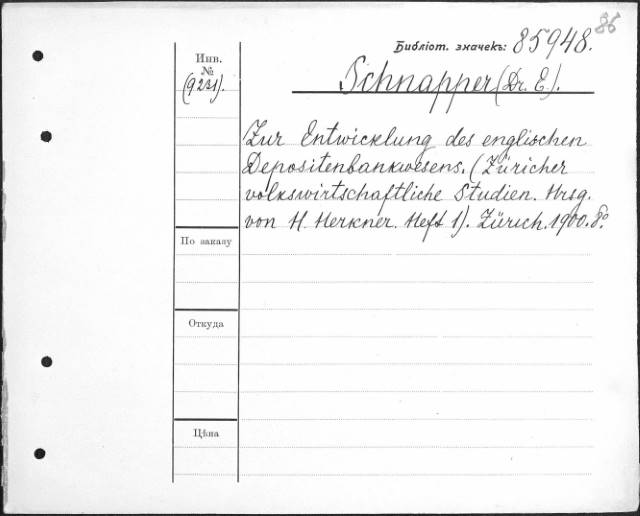 86
Библіот. значекъ: 85948.
Инв.
№
(9231).
Schnapper (Dr. E.).
Zur Entwicklung des englischen
Depositenbankwesens. (Züricher
volkswirtschaftliche Studien. Hrsg.
von H. Herkner. Heft 1). Zürich. 1900. 8°.
По заказу
Откуда
Цѣна